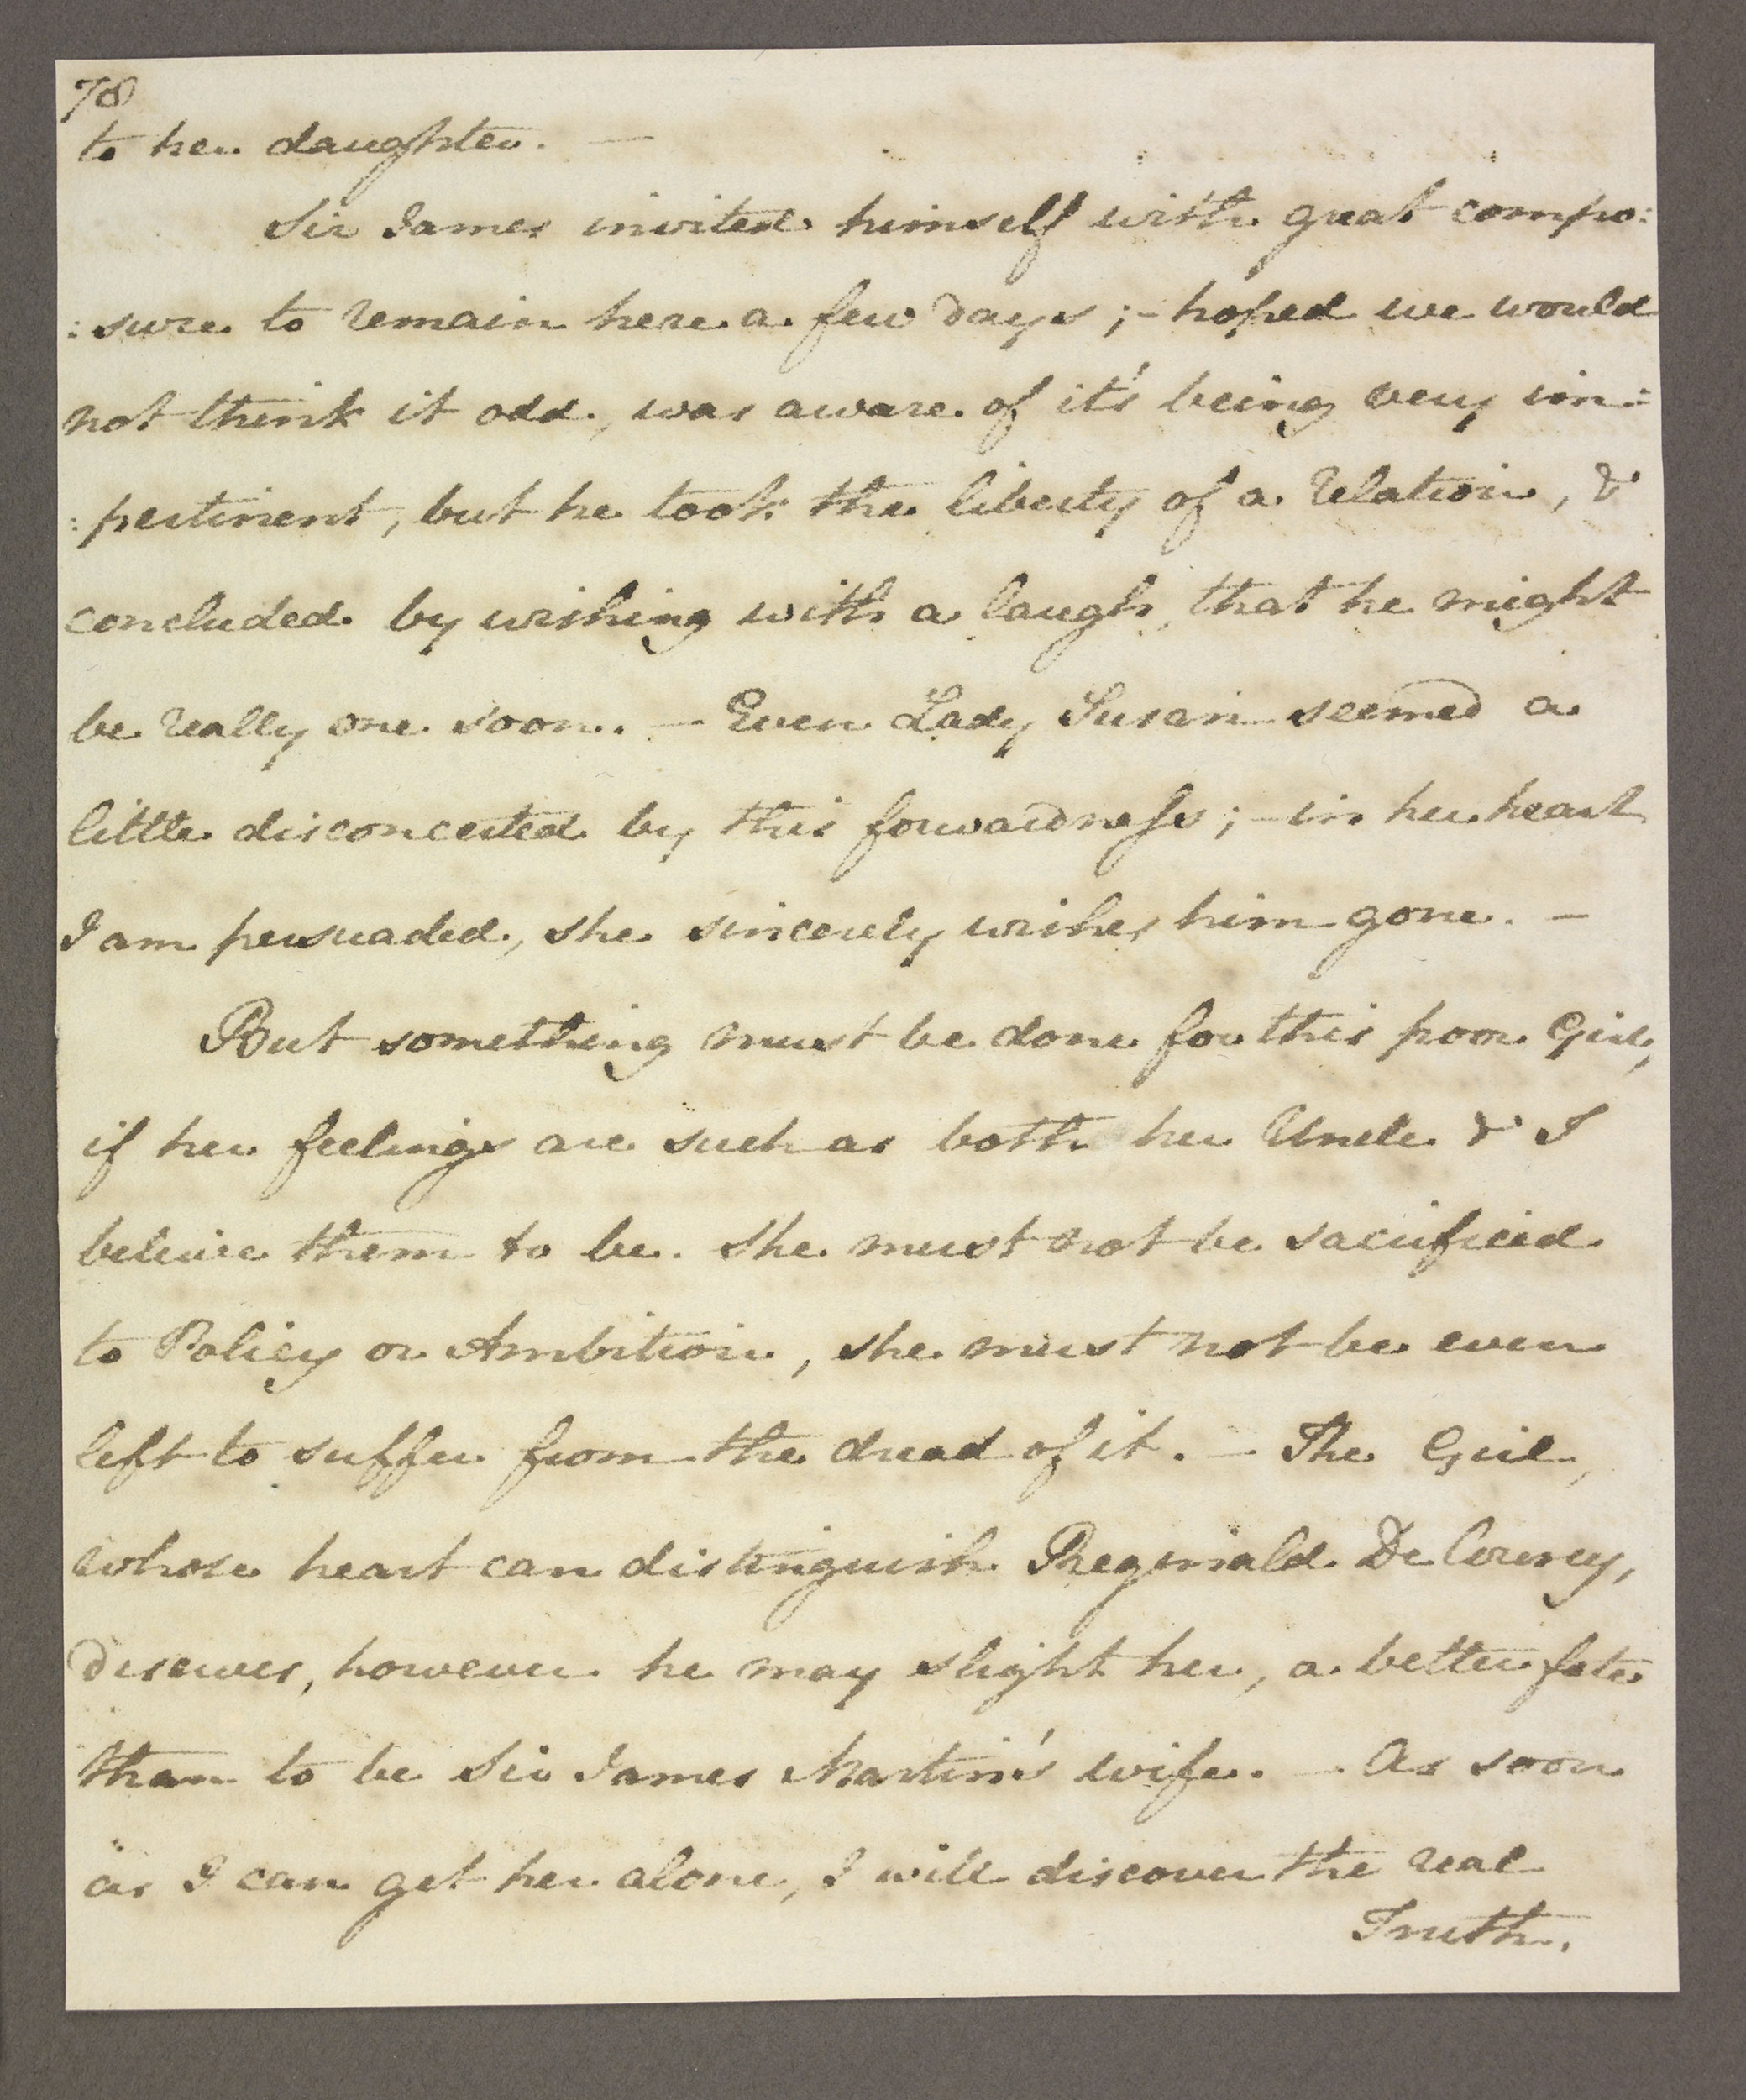 78
to her daughter. —
Sir James invited himself with great compo:
:sure to remain here a few days; – hoped we would
not think it odd, was aware of it's being very im:
:pertinent, but he took the liberty of a relation, &
concluded by wishing with a laugh, that he might
be really one soon. — Even Lady Susan seemed a
little disconcerted by this forwardness; – in her heart
I am persuaded, she sincerely wishes him gone. —
But something must be done for this poor Girl,
if her feelings are such as both her Uncle & I
beleive them to be. She must not be sacrificed
to Policy or Ambition, she must not be even
left to suffer from the dread of it. — The Girl,
whose heart can distinguish Reginald De Courcy,
deserves, however he may slight her, a better fate
than to be Sir James Martin's wife. — As soon
as I can get her alone, I will discover the real
Truth.